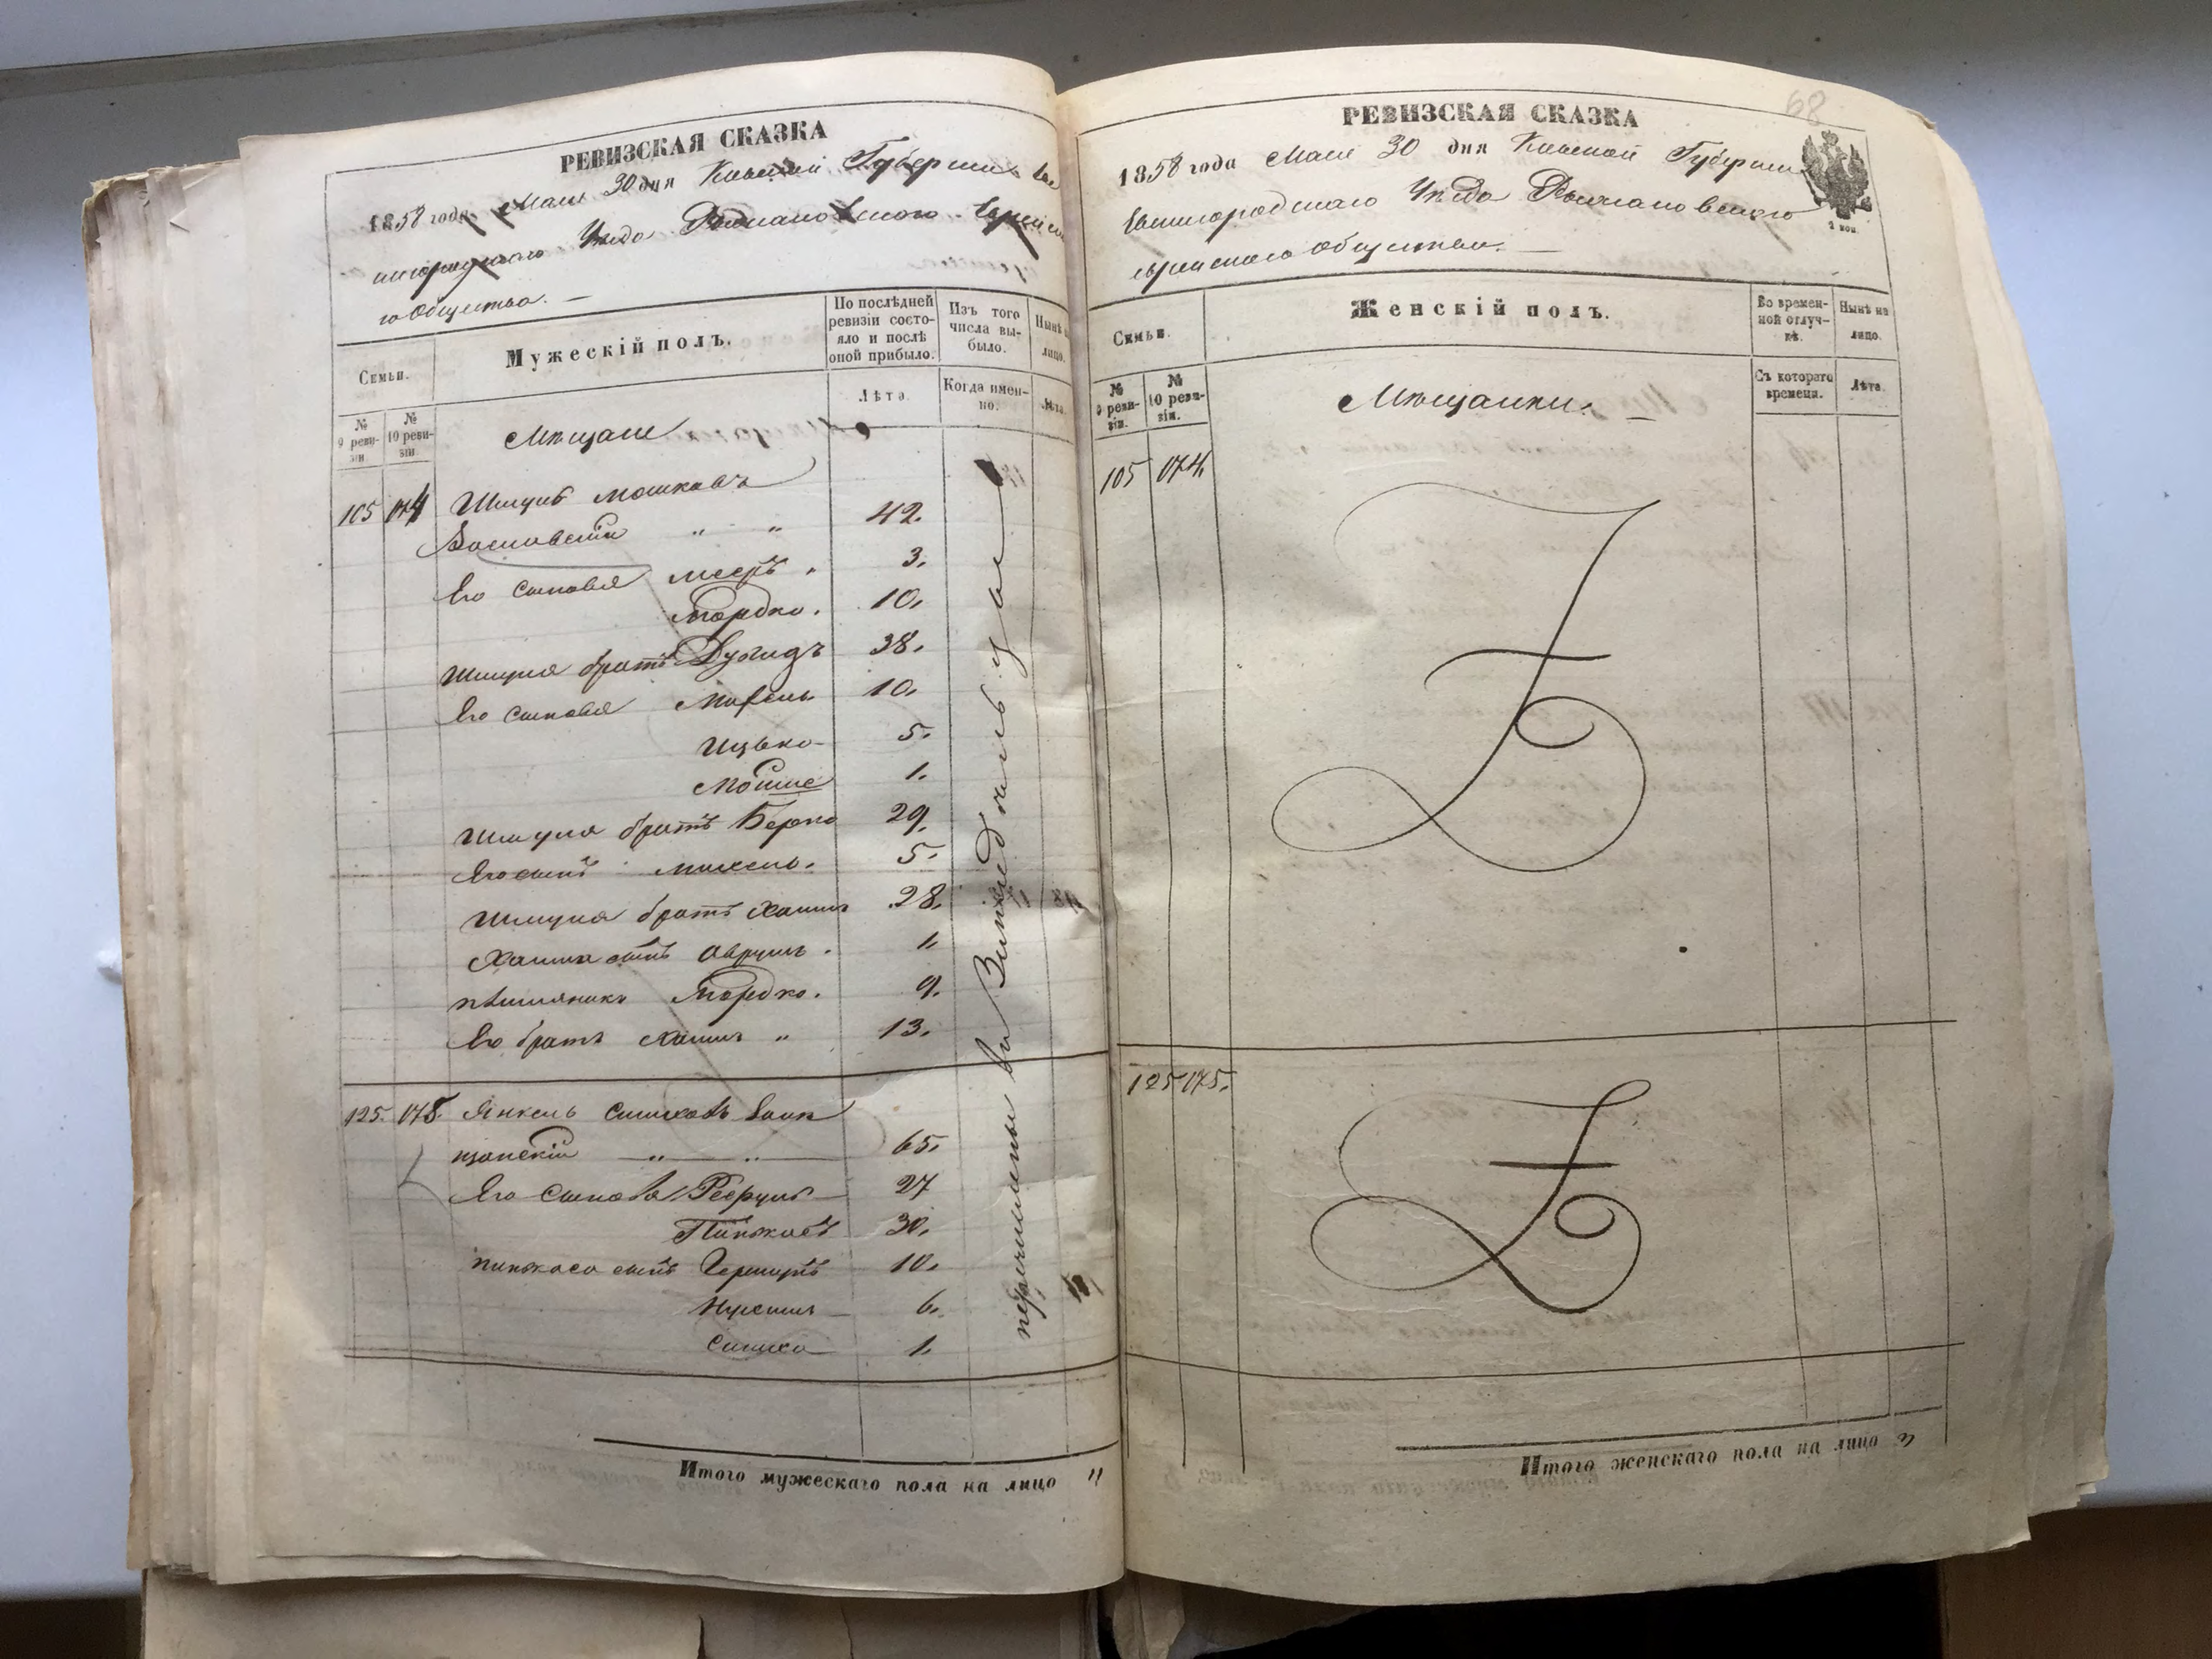 РЕВИЗСКАЯ СКАЗКА
1858 года Мая 30 дня Киевской Губернии
Уезда Романовского
го Общества. —
Семьи.
Мужескій полъ.
По послѣдней ревизіи состояло и послѣ оной прибыло.
Изъ того числа выбыло.
Нынѣ на лицо.
№ 9 ревизіи
№ 10 ревизіи
Лѣта.
Когда именно.
Лѣта
Мѣщане
105 074 Шмуль Мошковъ
" " 42.
Его сыновья Мееръ " 3.
Мордко. 10.
Шмуля братъ 38.
Его сыновья 10.
Ицько 5.
Мойше 1.
Шмуля братъ Берко 29.
Его сынъ Михель. 5.
Шмуля братъ Хаимъ 28.
Хаима сынъ Аврумъ. 1.
племянникъ Мордко. 9.
Его братъ Хаимъ " 13.
125. 075. Янкель Симховъ
" " 65.
Его сыновья 27
Пинхасъ 30.
Пинхаса сынъ Гершунъ 10.
6.
Симха 1.
перечислены въ
Итого мужескаго пола на лицо "
68
РЕВИЗСКАЯ СКАЗКА
1858 года Мая 30 дня Киевской Губерніи
Звенигородскаго Уезда Романовского
еврейскаго Общества. —
Семьи.
Женскій полъ.
Во временной отлучкѣ.
Нынѣ на лицо.
№ 9 ревизіи.
№ 10 ревизіи.
Съ котораго времени.
Лѣта.
Мѣщанки. —
105 074.
125 075.
Итого женскаго пола на лицо